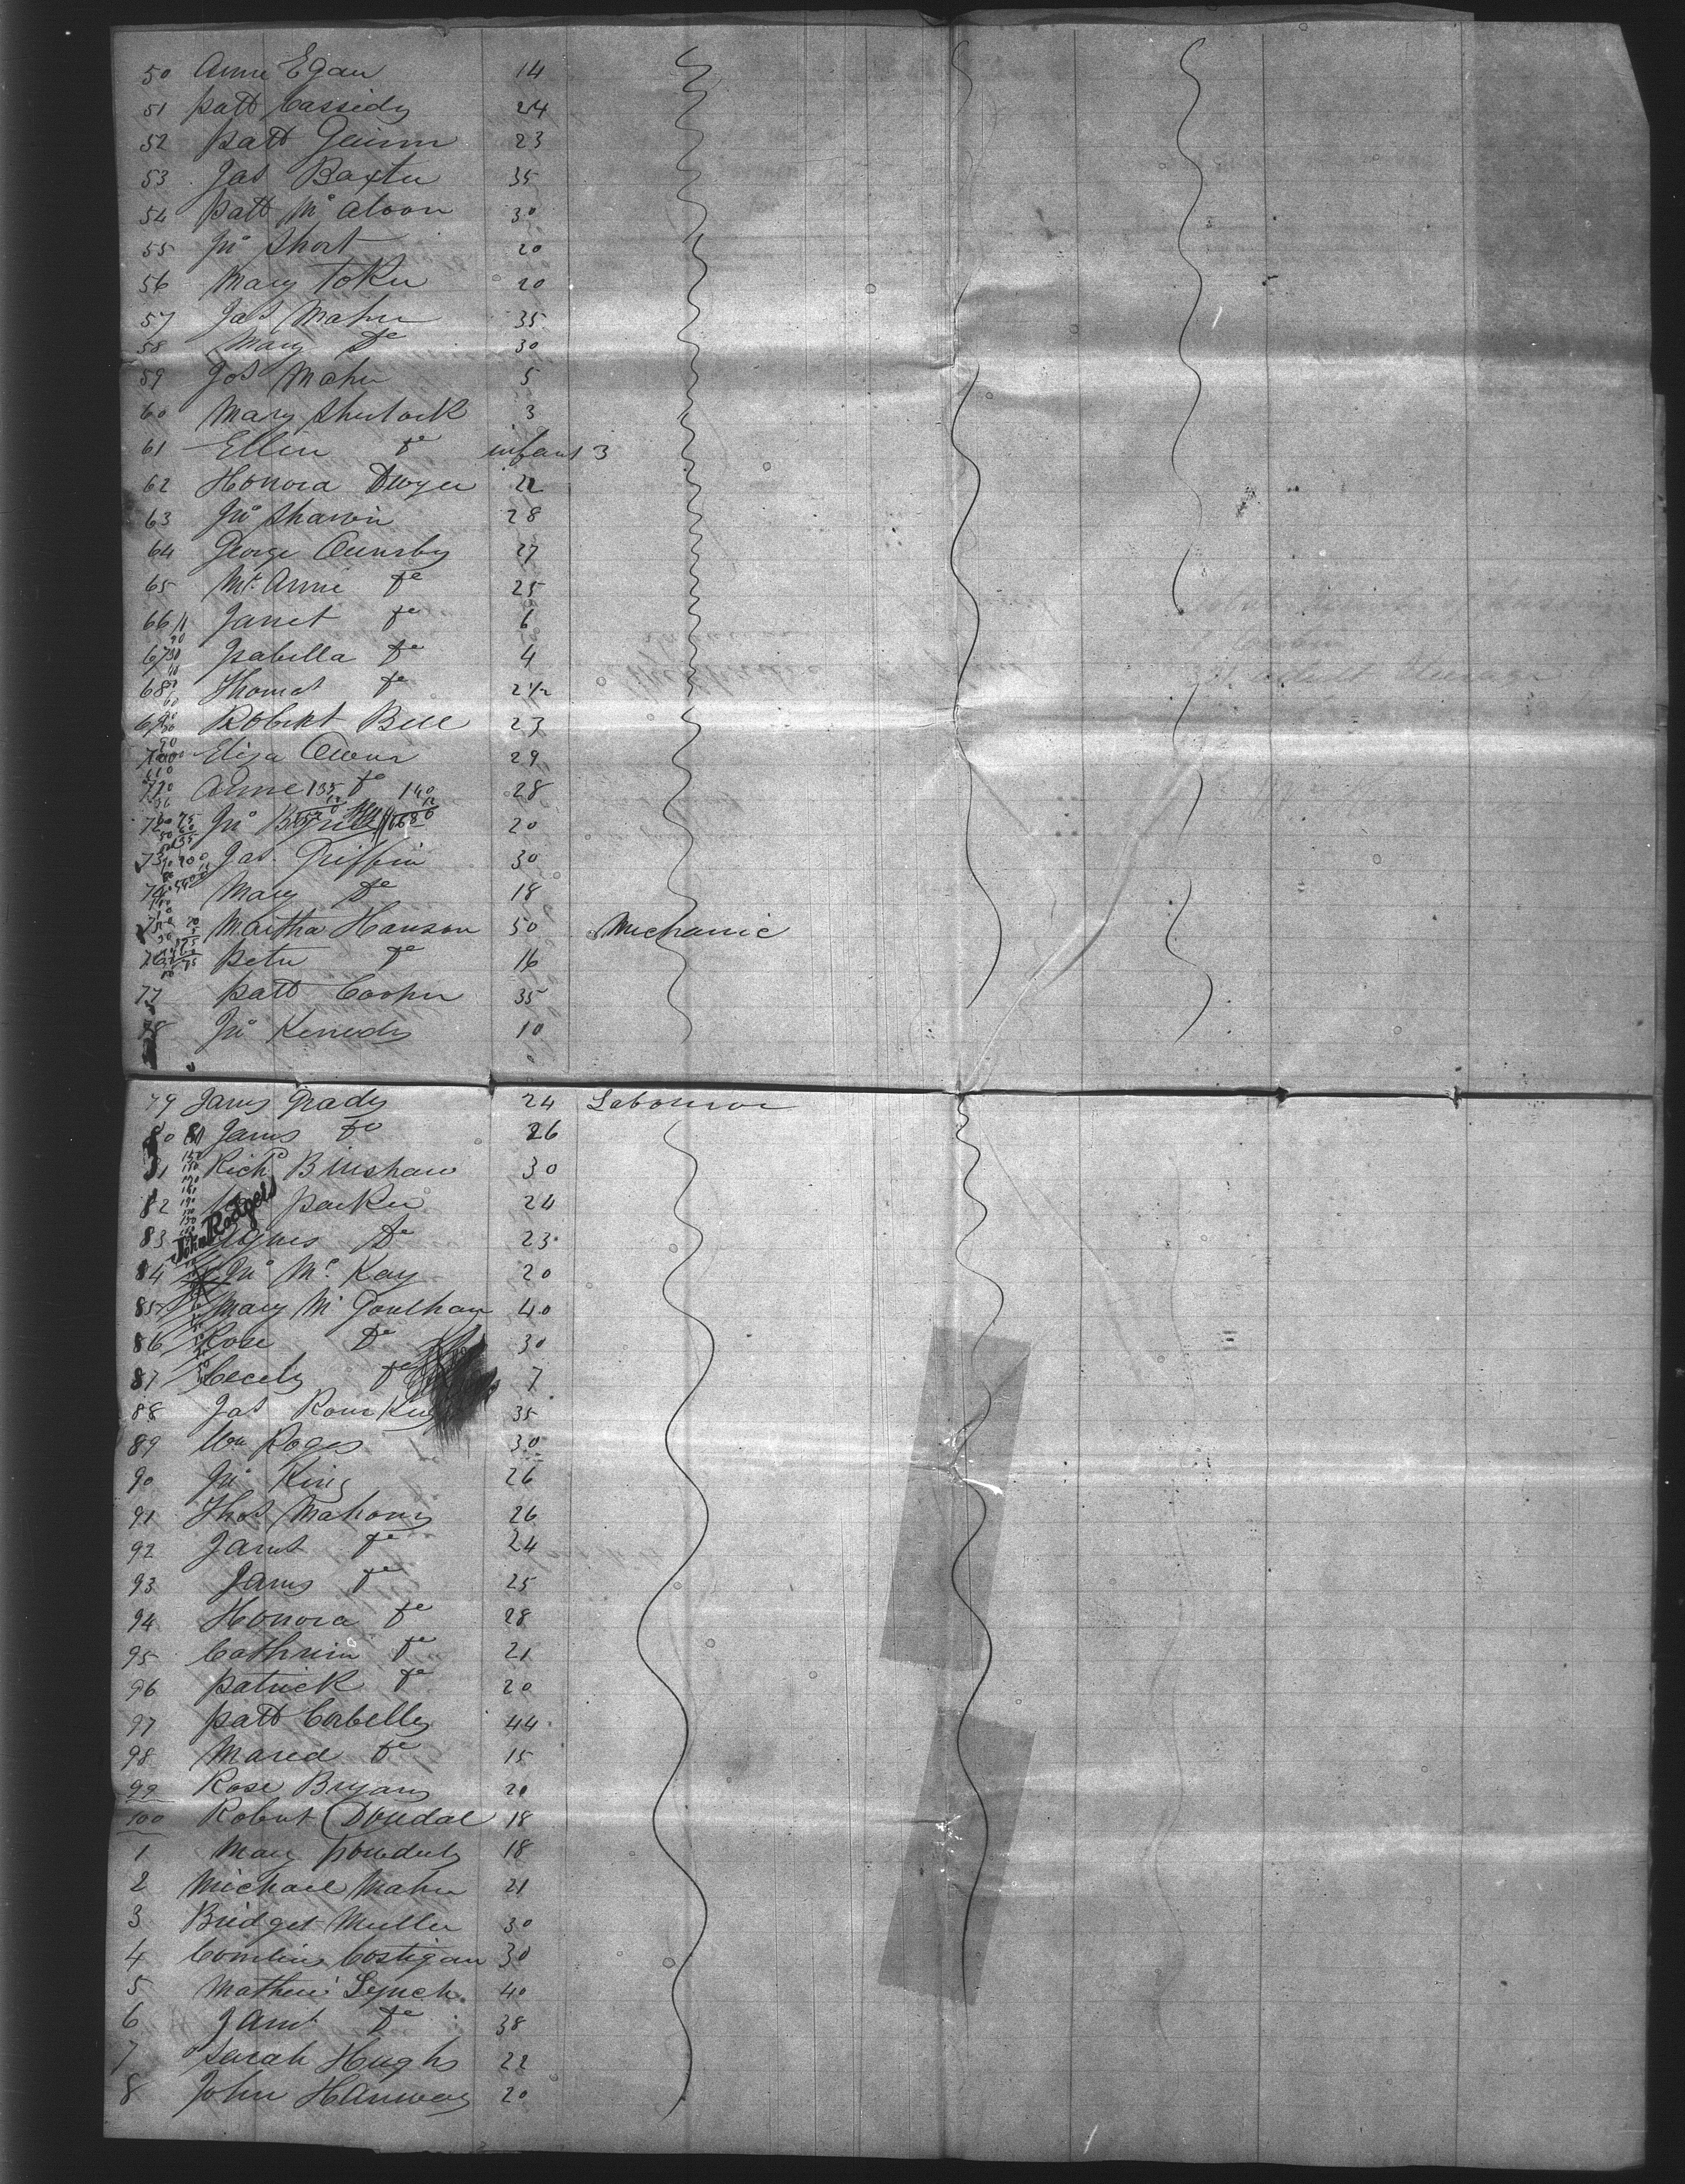 50 Anne Egan 14
51 patt Cassidy 24
52 patt Guinn 23
53 Jas Baxter 35
54 patt Mc Aloon 30
55 Jno Short 20
56 Mary Toker 20
57 Jas Maher 35
58 Mary Do 30
59 Jos Maher 5
60 Mary Sherlock 3
61 Ellen Do infant 3
62 Honora Dwyer 22
63 Jno Sharvin 28
64 George Ounsby 27
65 Mrs Anne Do 25
66 Janet Do 6
67 Isabella Do 4
68 Thomas Do 2 1/2
69 Robert Bell 23
70 Eliza Owens 29
Anne 135 Do 140 28
Jno 20
73 Jas Griffin 30
74 Mary Do 18
75 Martha Hanson 50 Mechanic
76 Peter Do 16
77 patt Cooper 35
78 Jno Kenedy 10
79 James Grady 24 Labourer
80 James Do 26
81 Richd Binshaw 30
82 parker 24
John Rodgers
83 Agnes Do 23
84 Jno Mc Kay 20
85 Mary Mc Goulhan 40
86 Rose Do 30
87 Cecely Do 7
88 Jas 35
89 Wm Roges 30
90 Jno King 26
91 Thos Mahony 26
92 Janet Do 24
93 James Do 25
94 Honora Do 28
95 Cathrin Do 21
96 patrick Do 20
97 patt Corbelly 44
98 Mared Do 15
99 Rose Bryan 20
100 Robert Doudal 18
1 Mary 18
2 Michael Maher 21
3 Bridget Muller 30
4 Costigan 30
5 Mathew Lynch 40
6 Janet Do 38
7 Sarah Hughs 22
8 John Hanway 20